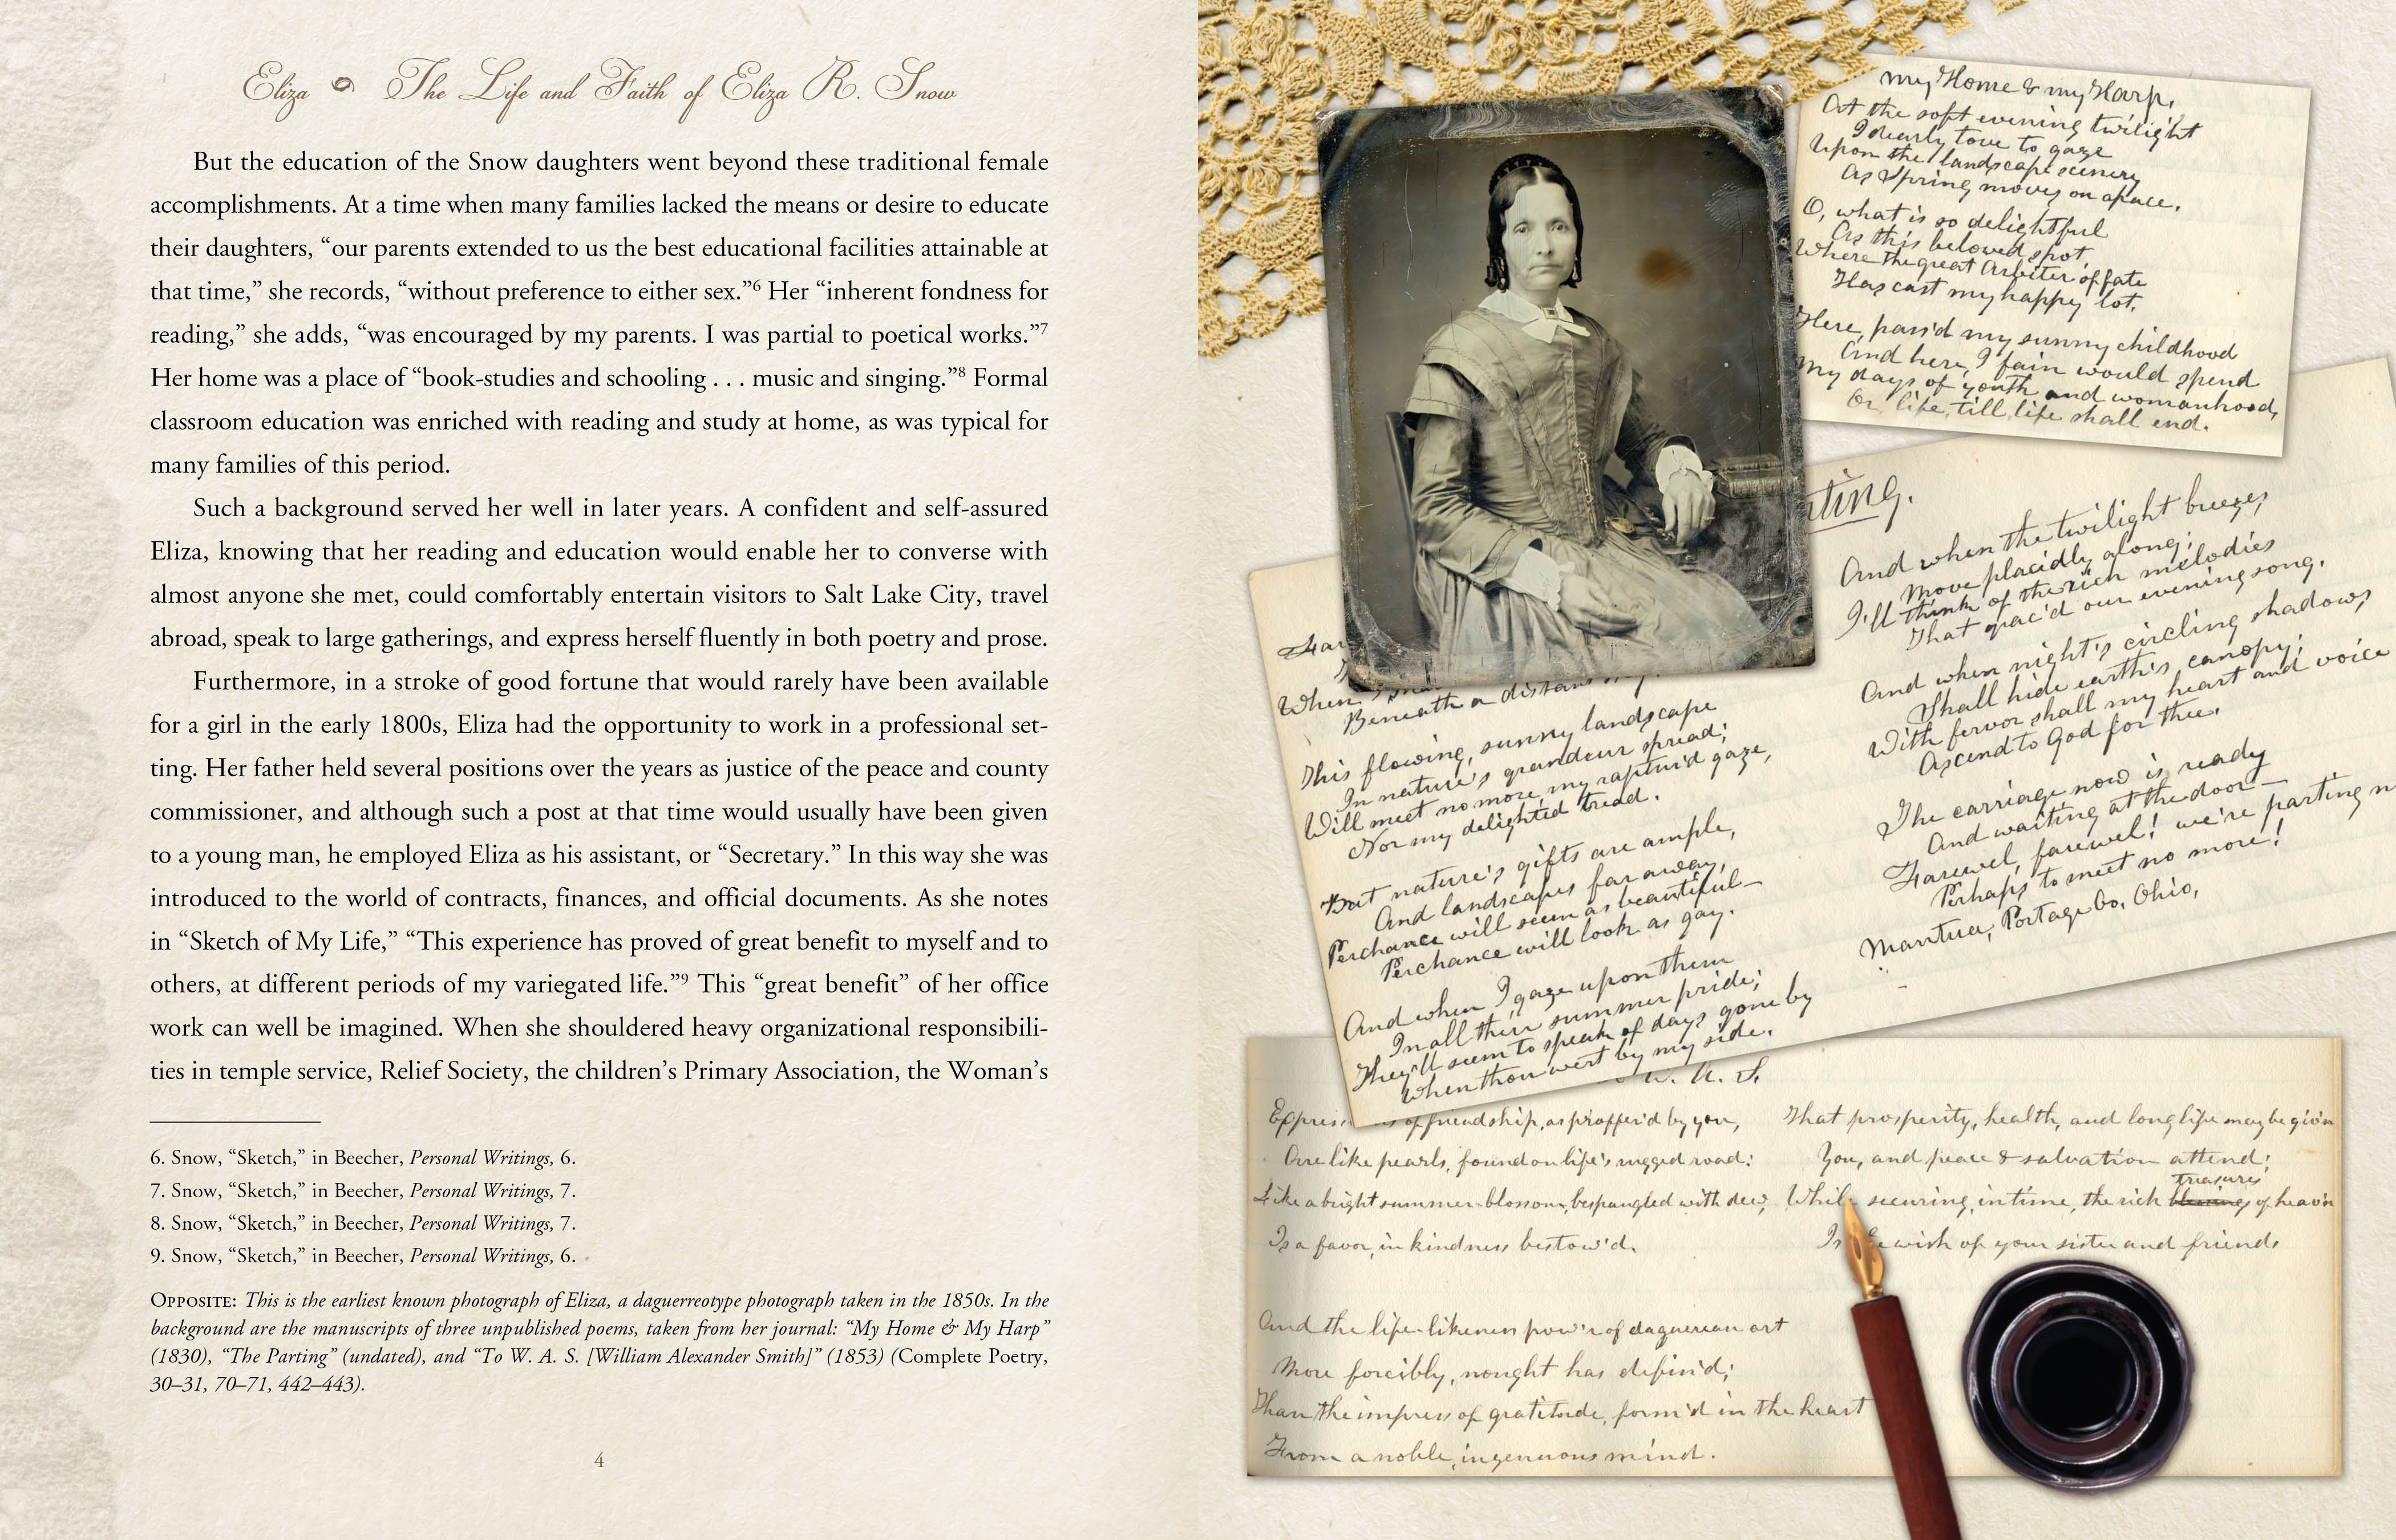 Eliza The Life and Faith of Eliza R. Snow
But the education of the Snow daughters went beyond these traditional female
accomplishments. At a time when many families lacked the means or desire to educate
their daughters, “our parents extended to us the best educational facilities attainable at
that time,” she records, “without preference to either sex.”6 Her “inherent fondness for
reading,” she adds, “was encouraged by my parents. I was partial to poetical works.”7
Her home was a place of “book-studies and schooling . . . music and singing.”8 Formal
classroom education was enriched with reading and study at home, as was typical for
many families of this period.
Such a background served her well in later years. A confident and self-assured
Eliza, knowing that her reading and education would enable her to converse with
almost anyone she met, could comfortably entertain visitors to Salt Lake City, travel
abroad, speak to large gatherings, and express herself fluently in both poetry and prose.
Furthermore, in a stroke of good fortune that would rarely have been available
for a girl in the early 1800s, Eliza had the opportunity to work in a professional set-
ting. Her father held several positions over the years as justice of the peace and county
commissioner, and although such a post at that time would usually have been given
to a young man, he employed Eliza as his assistant, or “Secretary.” In this way she was
introduced to the world of contracts, finances, and official documents. As she notes
in “Sketch of My Life,” “This experience has proved of great benefit to myself and to
others, at different periods of my variegated life.”9 This “great benefit” of her office
work can well be imagined. When she shouldered heavy organizational responsibili-
ties in temple service, Relief Society, the children’s Primary Association, the Woman’s
6. Snow, “Sketch,” in Beecher, Personal Writings, 6.
7. Snow, “Sketch,” in Beecher, Personal Writings, 7.
8. Snow, “Sketch,” in Beecher, Personal Writings, 7.
9. Snow, “Sketch,” in Beecher, Personal Writings, 6.
Opposite: This is the earliest known photograph of Eliza, a daguerreotype photograph taken in the 1850s. In the
background are the manuscripts of three unpublished poems, taken from her journal: “My Home & My Harp”
(1830), “The Parting” (undated), and “To W. A. S. [William Alexander Smith]” (1853) (Complete Poetry,
30–31, 70–71, 442–443).
4
my Home & my Harp.
At the soft evening twilight
I dearly love to gaze
Upon the landscape scenery
As Spring moves on apace.
O, what is so delightful
As this beloved spot,
Where the great Arbiter of fate
Has cast my happy lot.
Here, pass'd my sunny childhood
And here, I fain would spend
My days of youth and womanhood,
Or life, till life shall end.
ting.
When
Beneath a distant
This flowing, sunny landscape
In nature's grandeur spread;
Will meet no more, my raptur'd gaze,
Nor my delighted tread.
But nature's gifts are ample,
And landscapes far away,
Perchance will seem as beautiful—
Perchance will look as gay.
And when I gaze upon them
In all their summer pride;
They'll seem to speak of days gone by
When thou wert by my side.
And when the twilight breezes
Move placidly along;
I'll think of the rich melodies
That grac'd our evening song.
And when night's circling shadows
Shall hide earth's canopy;
With fervor shall my heart and voice
Ascend to God for thee.
The carriage now is ready
And waiting at the door—
Farewel, farewel! we're parting
Perhaps to meet no more!
Mantua, Portage Co. Ohio,
W. A. S.
of friendship, as proffer'd by you,
Are like pearls, found on life's rugged road:
Like a bright summer-blossom, bespangled with dew,
Is a favor, in kindness bestow'd.
And the life-likeness pow'r of daguerean art
More forcibly, nought has defin'd;
Than the impress of gratitude, form'd in the heart
From a noble, ingenuous mind.
That prosperity, health, and long life may be giv'n
You, and peace & salvation attend;
treasures
While securing, in time, the rich of heav'n
Is wish of your sister and friend.